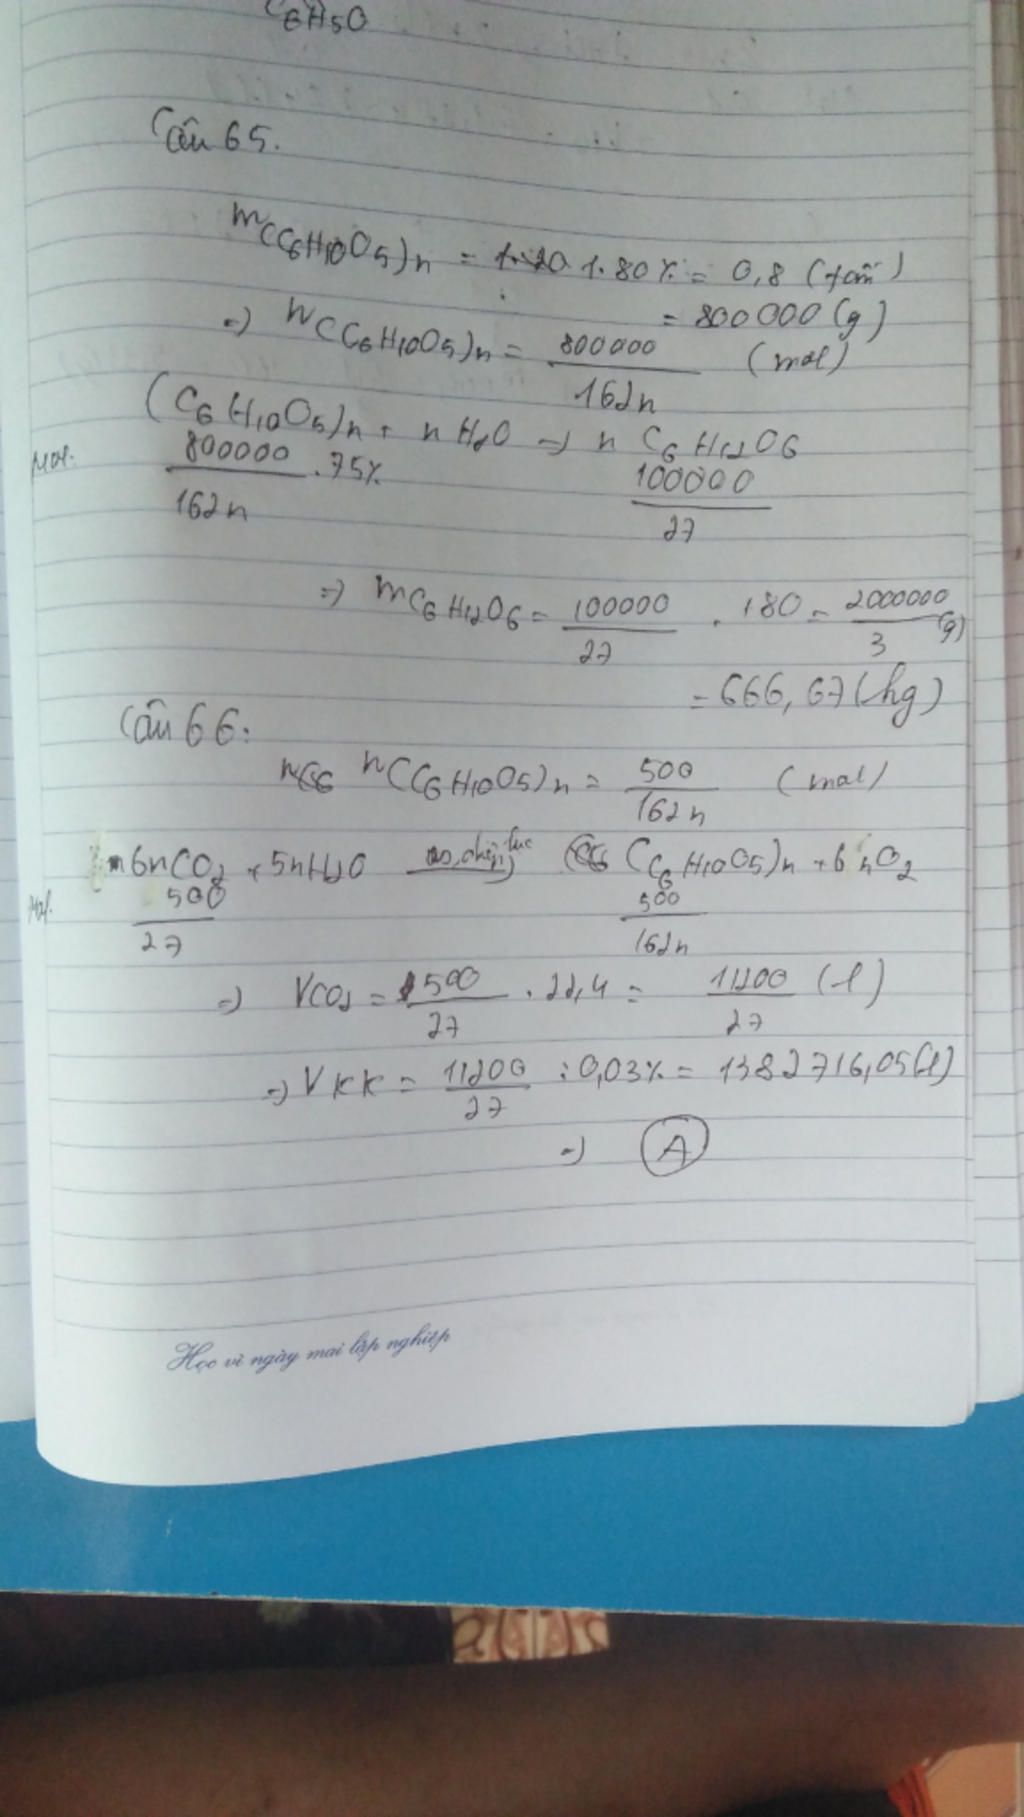 C6H5O
Câu 65.
mC(C6H10O5)n = 1.80% = 0,8 (tấn)
= 800000 (g)
=> nC(C6H10O5)n = 800000/162n (mol)
(C6H10O5)n + nH2O => n C6H12O6
Mol: 800000/162n .75% 100000/27
=> mC6H12O6 = 100000/27 . 180 = 2000000/3 (g)
= 666,67 (kg)
Câu 66:
nC(C6H10O5)n = 500/162n (mol)
6nCO2 + 5nH2O as, diệp lục (C6H10O5)n + 6nO2
Mol. 500/27 500/162n
=> VCO2 = 500/27 . 22,4 = 11200/27 (l)
=> VKK = 11200/27 : 0,03% = 1382716,05 (l)
=> A
Học vì ngày mai lập nghiệp